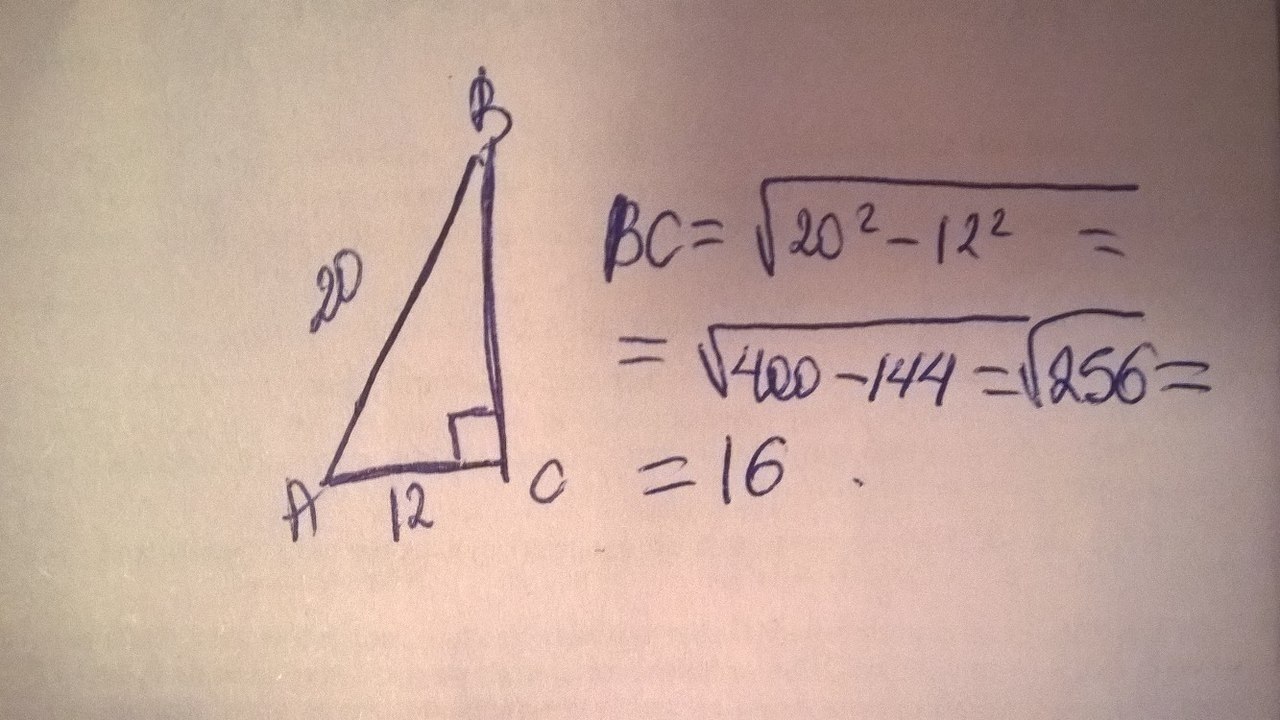 B
20
A
12
C
BC = √20² - 12² =
= √400 - 144 = √256 =
= 16 .